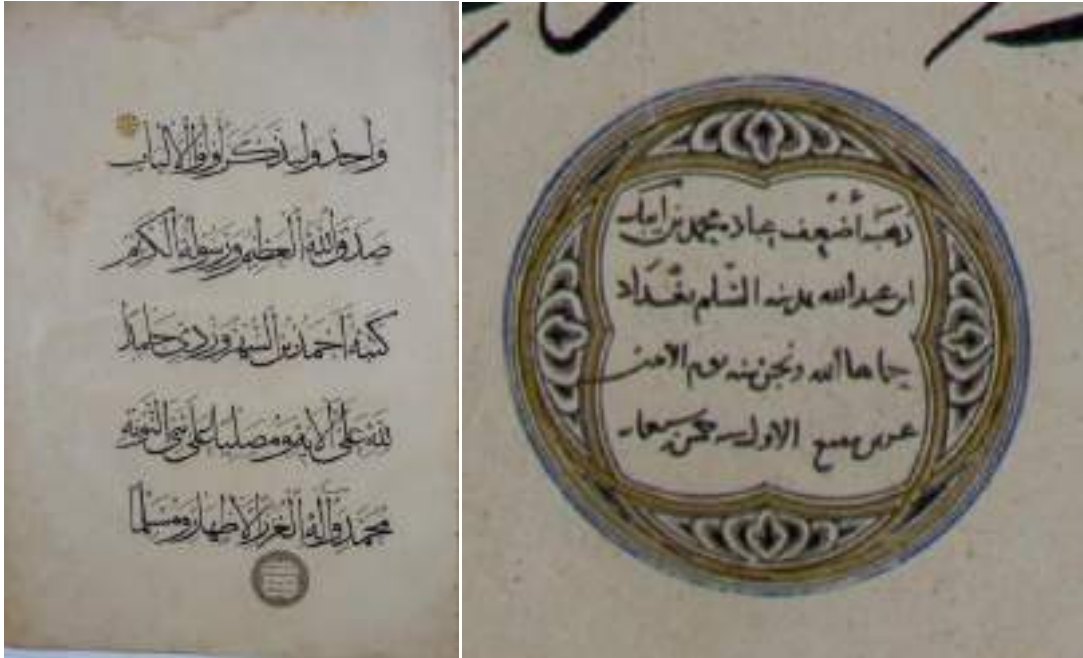 واحد وليذكر أولوا الألباب
صدق الله العظيم ورسوله الكريم
كتبه أحمد بن السهروردي حامدا
لله على آلائه ومصليا على نبي التوبة
محمد وآله الغرر الأطهار ومسلما
ذهبه أضعف عباده محمد بن ايبك
ابن عبد الله بمدينة السلم بغداد
حماها الله ونحن في يوم الاثنين
ربيع الاول سبعمائة